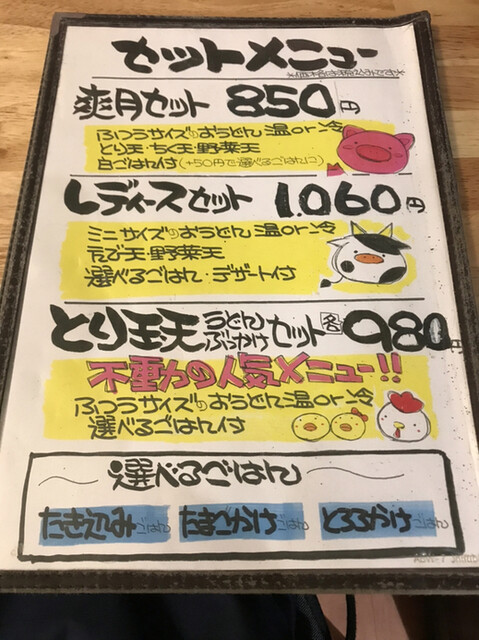 セットメニュー
爽月セット 850円
ふつうサイズのおうどん 温or冷
とり天・ちく天・野菜天
白ごはん付(+50円で選べるごはんに)
レディースセット 1.060円
ミニサイズのおうどん 温or冷
えび天・野菜天
選べるごはん・デザート付
とり玉天 うどん ぶっかけ セット 各980円
不動力の人気メニュー!!
ふつうサイズのおうどん温or冷
選べるごはん付
選べるごはん
たきこみごはん たまごかけごはん とろろかけごはん